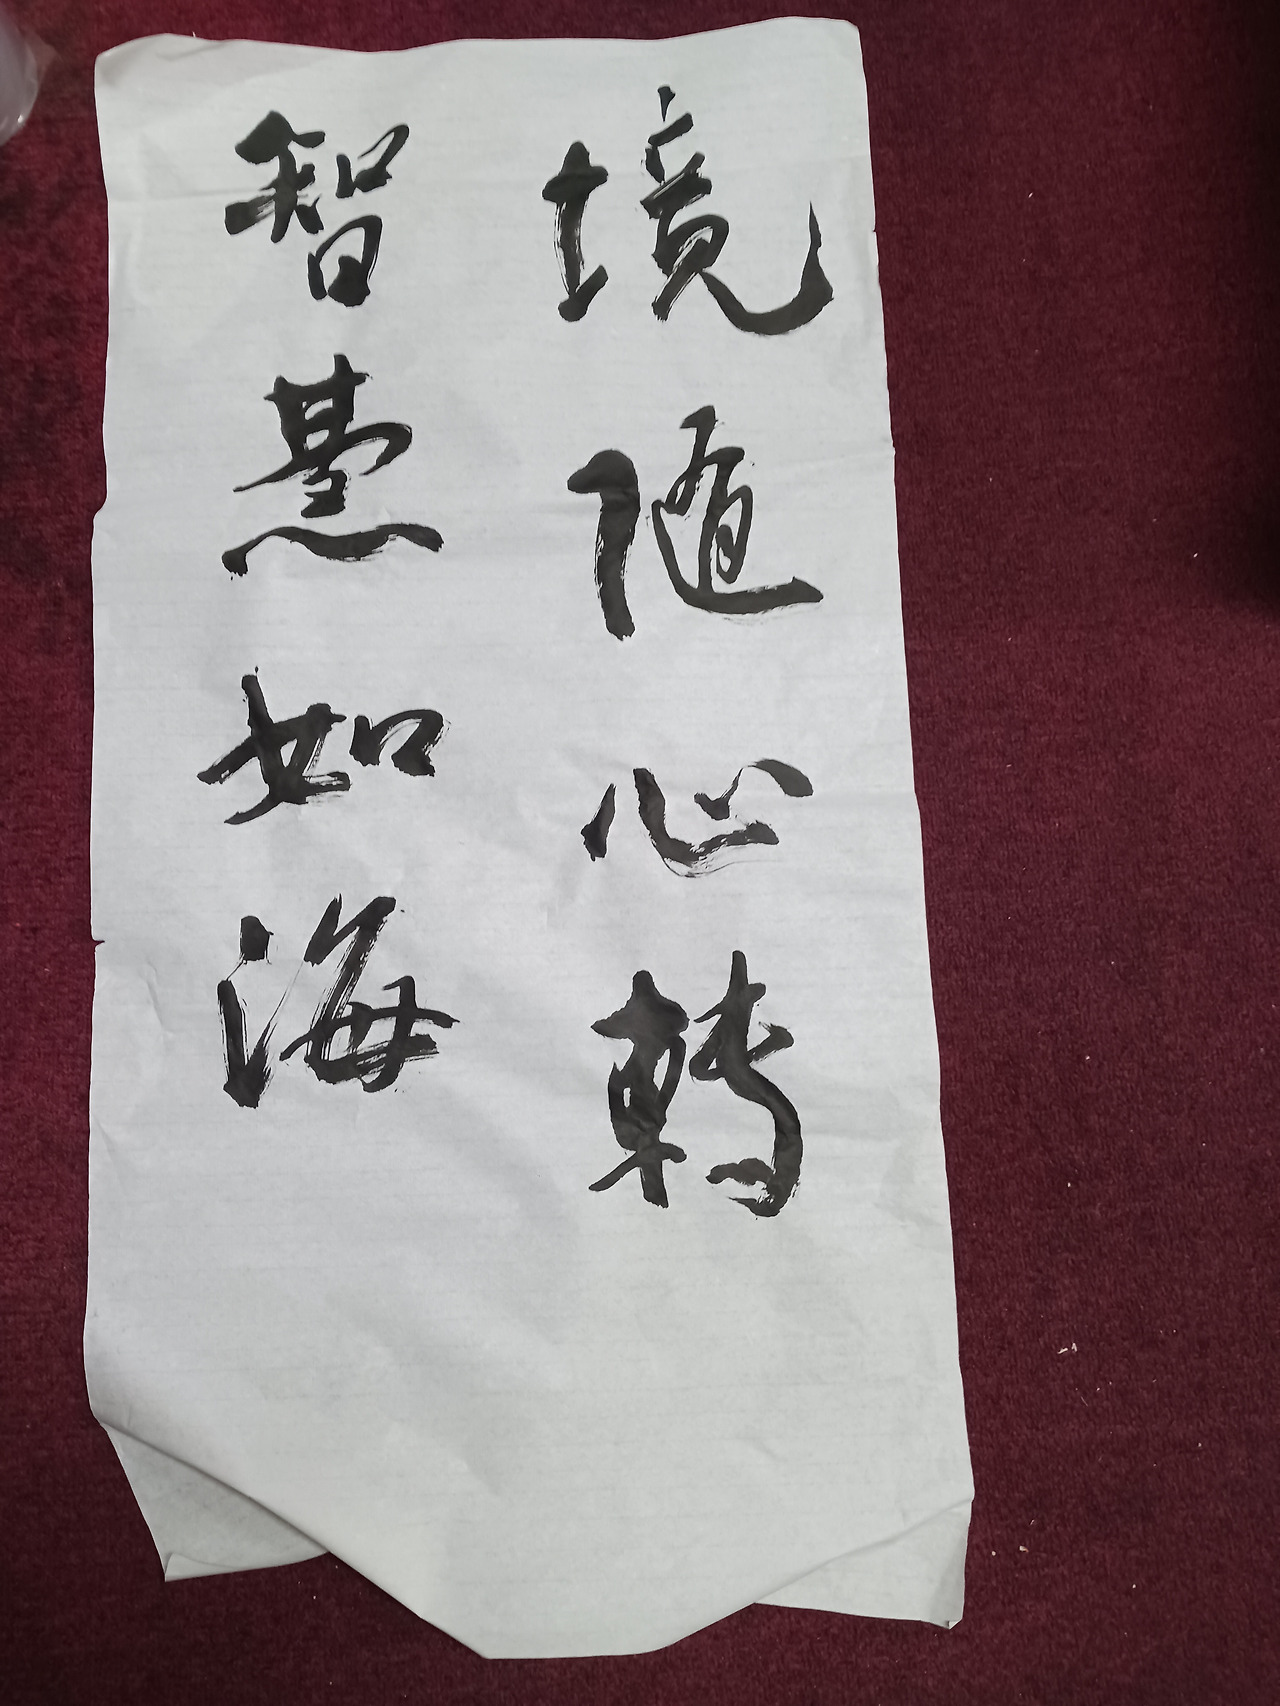 境随心轉
智慧如海